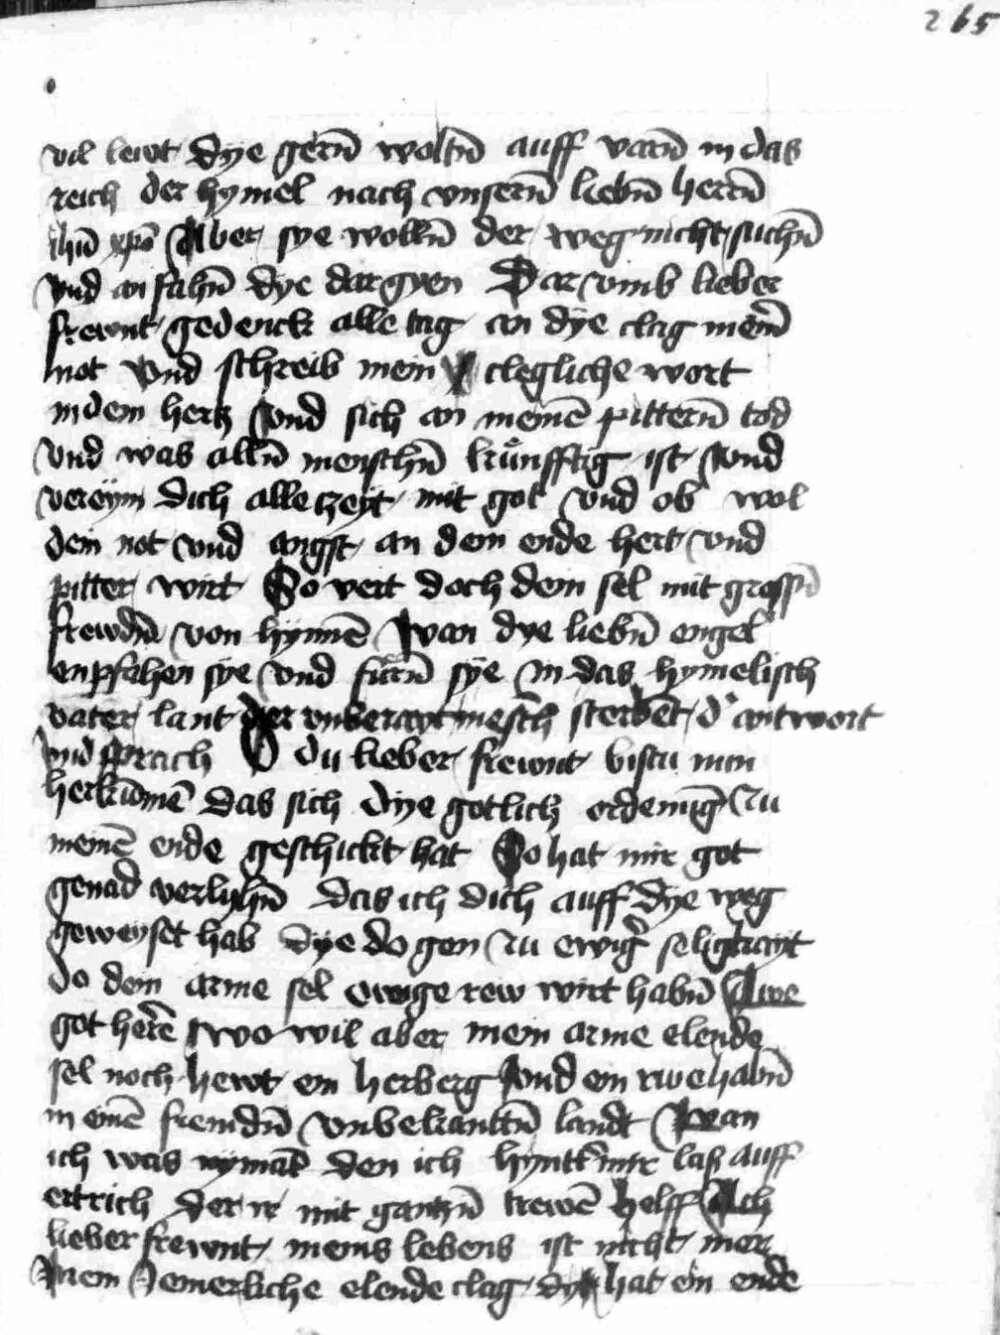 265
vil lewt dye gern̄ woltn̄ auff varn̄ in das
reich der hymel nach vnsern̄ liebn̄ herrn̄
ihū xpō Aber sye wolln̄ der weg nicht suchn̄
vnd an fahn̄ dye dar gyen Dar vmb lieber
frewnt gedenck alle tag an dye clag meiner̄
not vnd schreib mein clegliche wort
in dem hertz vnd sich an meinē pittern̄ tod
vnd was alln̄ menschn̄ kunfftig ist vnd
vereÿm dich alle tzeyt mit got vnd ob wol
dein not vnd angst an dem ende hert vnd
pitter wirt So vert doch dein sel mit grossn̄
frewdn̄ von hynnē Wan dye liebn̄ engel
enpfahen sye vnd furn̄ sÿe in das hymelisch
vater lant der vnberayt mesch̄ sterbēt d' antwort
vnd sprach O du lieber frewnt bistu nun
herkūmē das sich dye gotlich ordenūg zu
meinē ende geschickt hat So hat mir got
genad verlyhn̄ das ich dich auff dye weg
geweyset hab dye do gen zu ewig' seligkayt
do dein arme sel ewige rew wirt habn̄ Awe
got herē wo wil aber mein arme elende
sel noch hewt ein herberg vnd ein rwe habn̄
in einē fremdn̄ vnbekanttn̄ landt Wan
ich was nymāt den ich hyntt' mir laß auff
ertrich der ir mit gantzn̄ trewē helff Ach
lieber frewnt meins lebens ist nicht mer
Mein Jemerliche elende clag dy hat ein ende